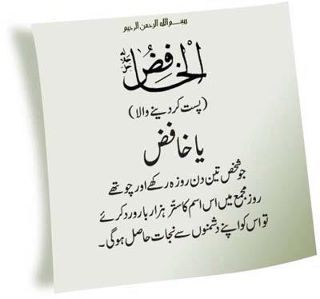 بسم اللہ الرحمن الرحیم
الخافض جل جلالہ
(پست کر دینے والا)
یا خافض
جو شخص تین دن روزہ رکھے اور چوتھے
روز مجمع میں اس اسم کا ستر ہزار بار ورد کرئے
تو اس کو اپنے دشمنوں سے نجات حاصل ہوگی۔